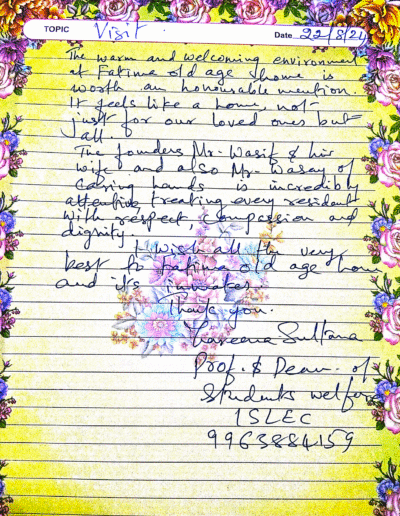 TOPIC Visit Date 22/8/24
The warm and welcoming environment
at Fatima old age home is
worth an honourable mention.
It feels like a home, not
just for our loved ones but
all.
The founders Mr. Wasif & his
wife and also Mr. Wasay of
Caring hands is incredibly
attentive treating every resident
with respect, compassion and
dignity.
I wish all the very
best to Fatima old age home
and its inmates.
Thank you.
Sultana
Prof. & Dean of
Students welfare
ISLEC
9963884159